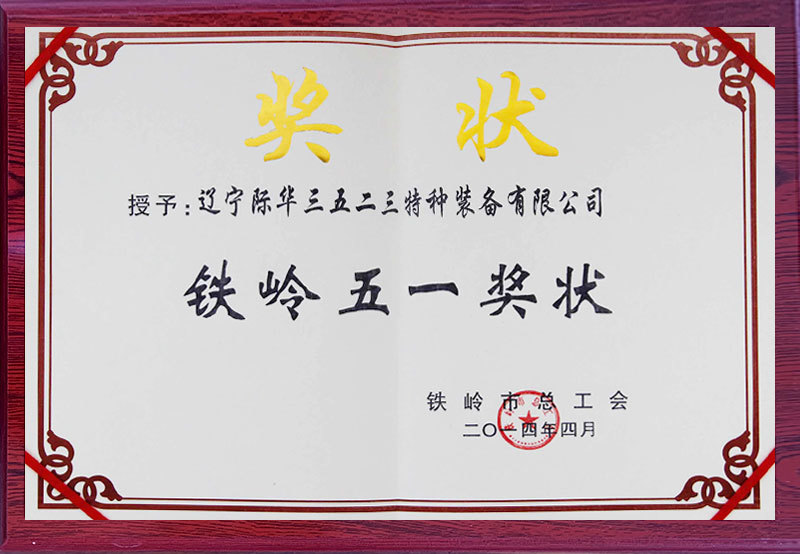 奖状
授予:辽宁际华三五二三特种装备有限公司
铁岭五一奖状
铁岭市总工会
二〇一四年四月